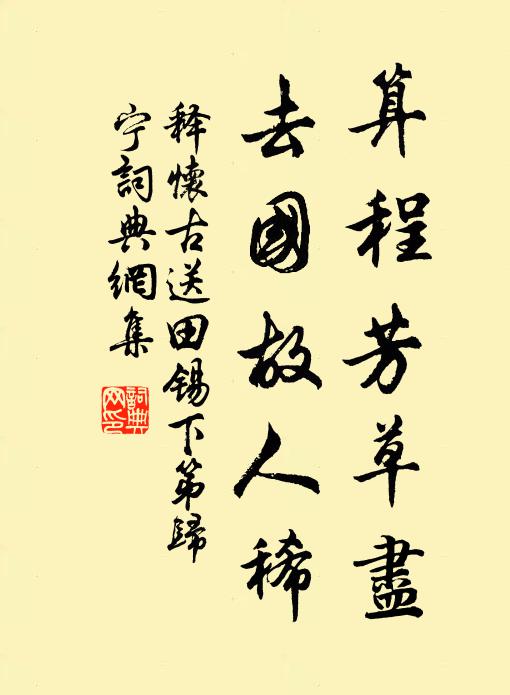 算程芳草盡
去國故人稀
释懷古送田錫下第歸
宁詞典網集
詞典
网印